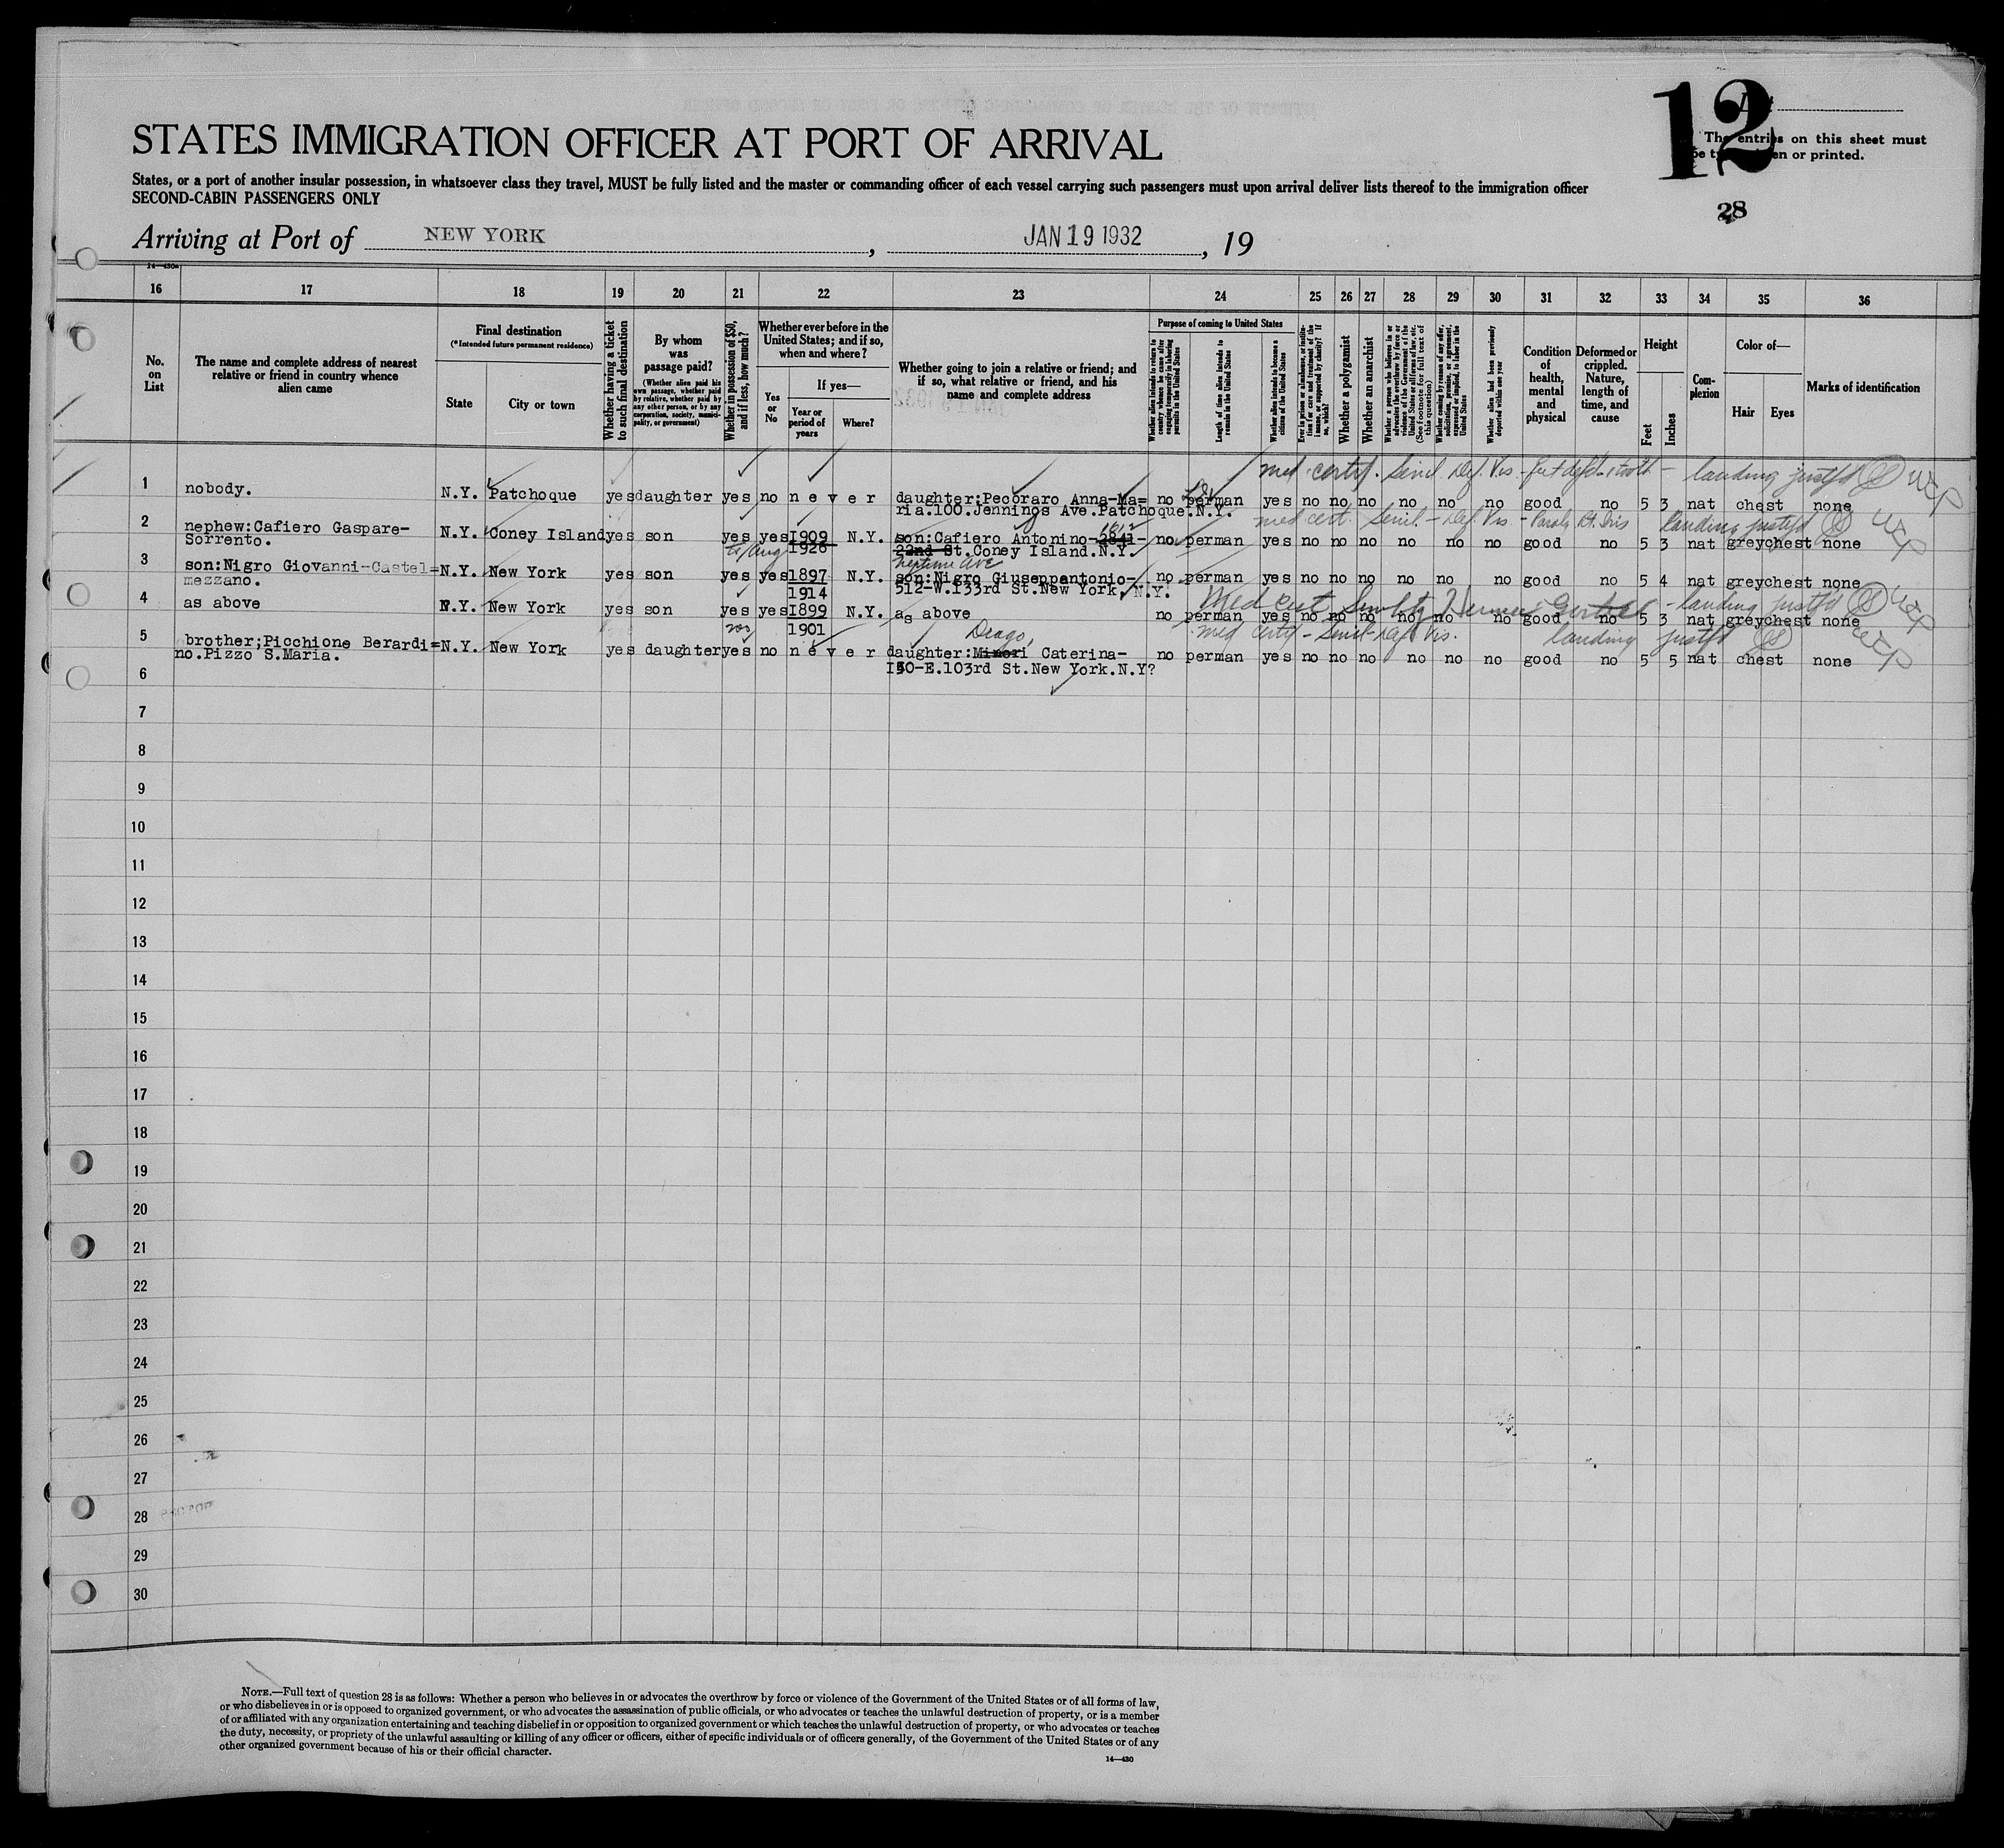 12
List
The entries on this sheet must
be typewritten or printed.
28
STATES IMMIGRATION OFFICER AT PORT OF ARRIVAL
States, or a port of another insular possession, in whatsoever class they travel, MUST be fully listed and the master or commanding officer of each vessel carrying such passengers must upon arrival deliver lists thereof to the immigration officer
SECOND-CABIN PASSENGERS ONLY
Arriving at Port of NEW YORK, JAN 19 1932, 19
14—430a
16 17 18 19 20 21 22 23 24 25 26 27 28 29 30 31 32 33 34 35 36
No. on List
The name and complete address of nearest relative or friend in country whence alien came
Final destination
(*Intended future permanent residence)
State
City or town
Whether having a ticket to such final destination
By whom was passage paid?
(Whether alien paid his own passage, whether paid by relative, whether paid by any other person, or by any corporation, society, municipality, or government)
Whether in possession of $50, and if less, how much?
Whether ever before in the United States; and if so, when and where?
Yes or No
If yes—
Year or period of years
Where?
Whether going to join a relative or friend; and if so, what relative or friend, and his name and complete address
Purpose of coming to United States
Whether alien intends to return to country whence he came after engaging temporarily in laboring pursuits in the United States
Length of time alien intends to remain in the United States
Whether alien intends to become a citizen of the United States
Ever in prison or almshouse, or institution for care and treatment of the insane, or supported by charity? If so, which?
Whether a polygamist
Whether an anarchist
Whether a person who believes in or advocates the overthrow by force or violence of the Government of the United States or all forms of law, etc. (See footnote for full text of this question)
Whether coming by reason of any offer, solicitation, promise, or agreement, expressed or implied, to labor in the United States
Whether alien had been previously deported within one year
Condition of health, mental and physical
Deformed or crippled. Nature, length of time, and cause
Height
Feet
Inches
Complexion
Color of—
Hair
Eyes
Marks of identification
med certif. Senil Def. Vis. landing justfd
1 nobody. N.Y. Patchoque yes daughter yes no never daughter:Pecoraro Anna-Ma= no perman yes no no no no no no good no 5 3 nat chest none
ria.100.Jennings Ave.Patchoque.N.Y.
med cert. Senil - Def. Vis. landing justfd
2 nephew:Cafiero Gaspare- N.Y. Coney Island yes son yes yes 1909 N.Y. son:Cafiero Antonino-2841- no perman yes no no no no no no good no 5 3 nat grey chest none
Sorrento. 1926 22nd St.Coney Island.N.Y.
Neptune Ave
3 son:Nigro Giovanni-Castel= N.Y. New York yes son yes yes 1897 N.Y. son:Nigro Giuseppantonio- no perman yes no no no no no no good no 5 4 nat grey chest none
mezzano. 1914 512-W.133rd St.New York.N.Y.
Med cert Senility landing justfd
4 as above N.Y. New York yes son yes yes 1899 N.Y. as above no perman yes no no no no no no good no 5 3 nat grey chest none
1901
Drago,
med certf - Senil - Def Vis. landing justfd
5 brother;Picchione Berardi= N.Y. New York yes daughter yes no never daughter:Minori Caterina- no perman yes no no no no no no good no 5 5 nat chest none
no.Pizzo S.Maria. 150-E.103rd St.New York.N.Y?
6
7
8
9
10
11
12
13
14
15
16
17
18
19
20
21
22
23
24
25
26
27
28
29
30
NOTE.—Full text of question 28 is as follows: Whether a person who believes in or advocates the overthrow by force or violence of the Government of the United States or of all forms of law,
or who disbelieves in or is opposed to organized government, or who advocates the assassination of public officials, or who advocates or teaches the unlawful destruction of property, or is a member
of or affiliated with any organization entertaining and teaching disbelief in or opposition to organized government or which teaches the unlawful destruction of property, or who advocates or teaches
the duty, necessity, or propriety of the unlawful assaulting or killing of any officer or officers, either of specific individuals or of officers generally, of the Government of the United States or of any
other organized government because of his or their official character.
14—430